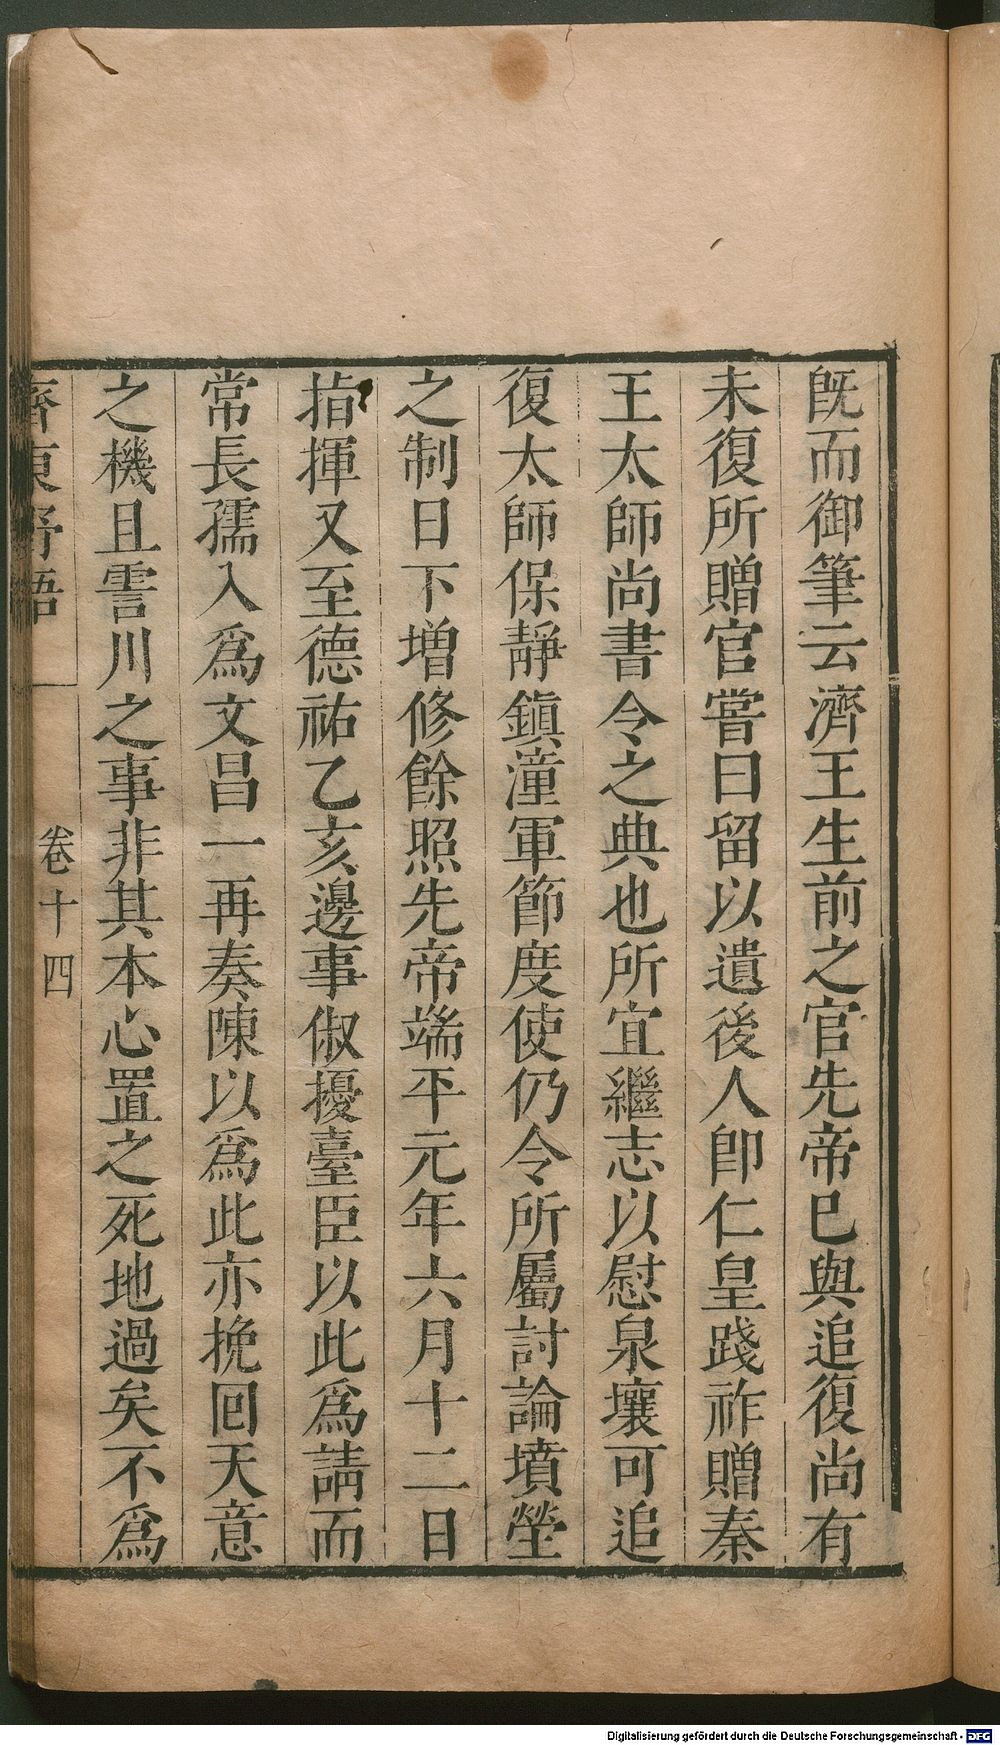 旣而御筆云濟王生前之官先帝已與追復尚有
未復所贈官嘗曰留以遺後人卽仁皇踐祚贈秦
王太師尚書令之典也所宜繼志以慰泉壤可追
復太師保靜鎮潼軍節度使仍令所屬討論墳塋
之制日下增修餘照先帝端平元年六月十二日
指揮又至德祐乙亥邊事俶擾臺臣以此爲請而
常長孺入爲文昌一再奏陳以爲此亦挽回天意
之機且霅川之事非其本心置之死地過矣不爲
齊東野語 卷十四
Digitalisierung gefördert durch die Deutsche Forschungsgemeinschaft - DFG